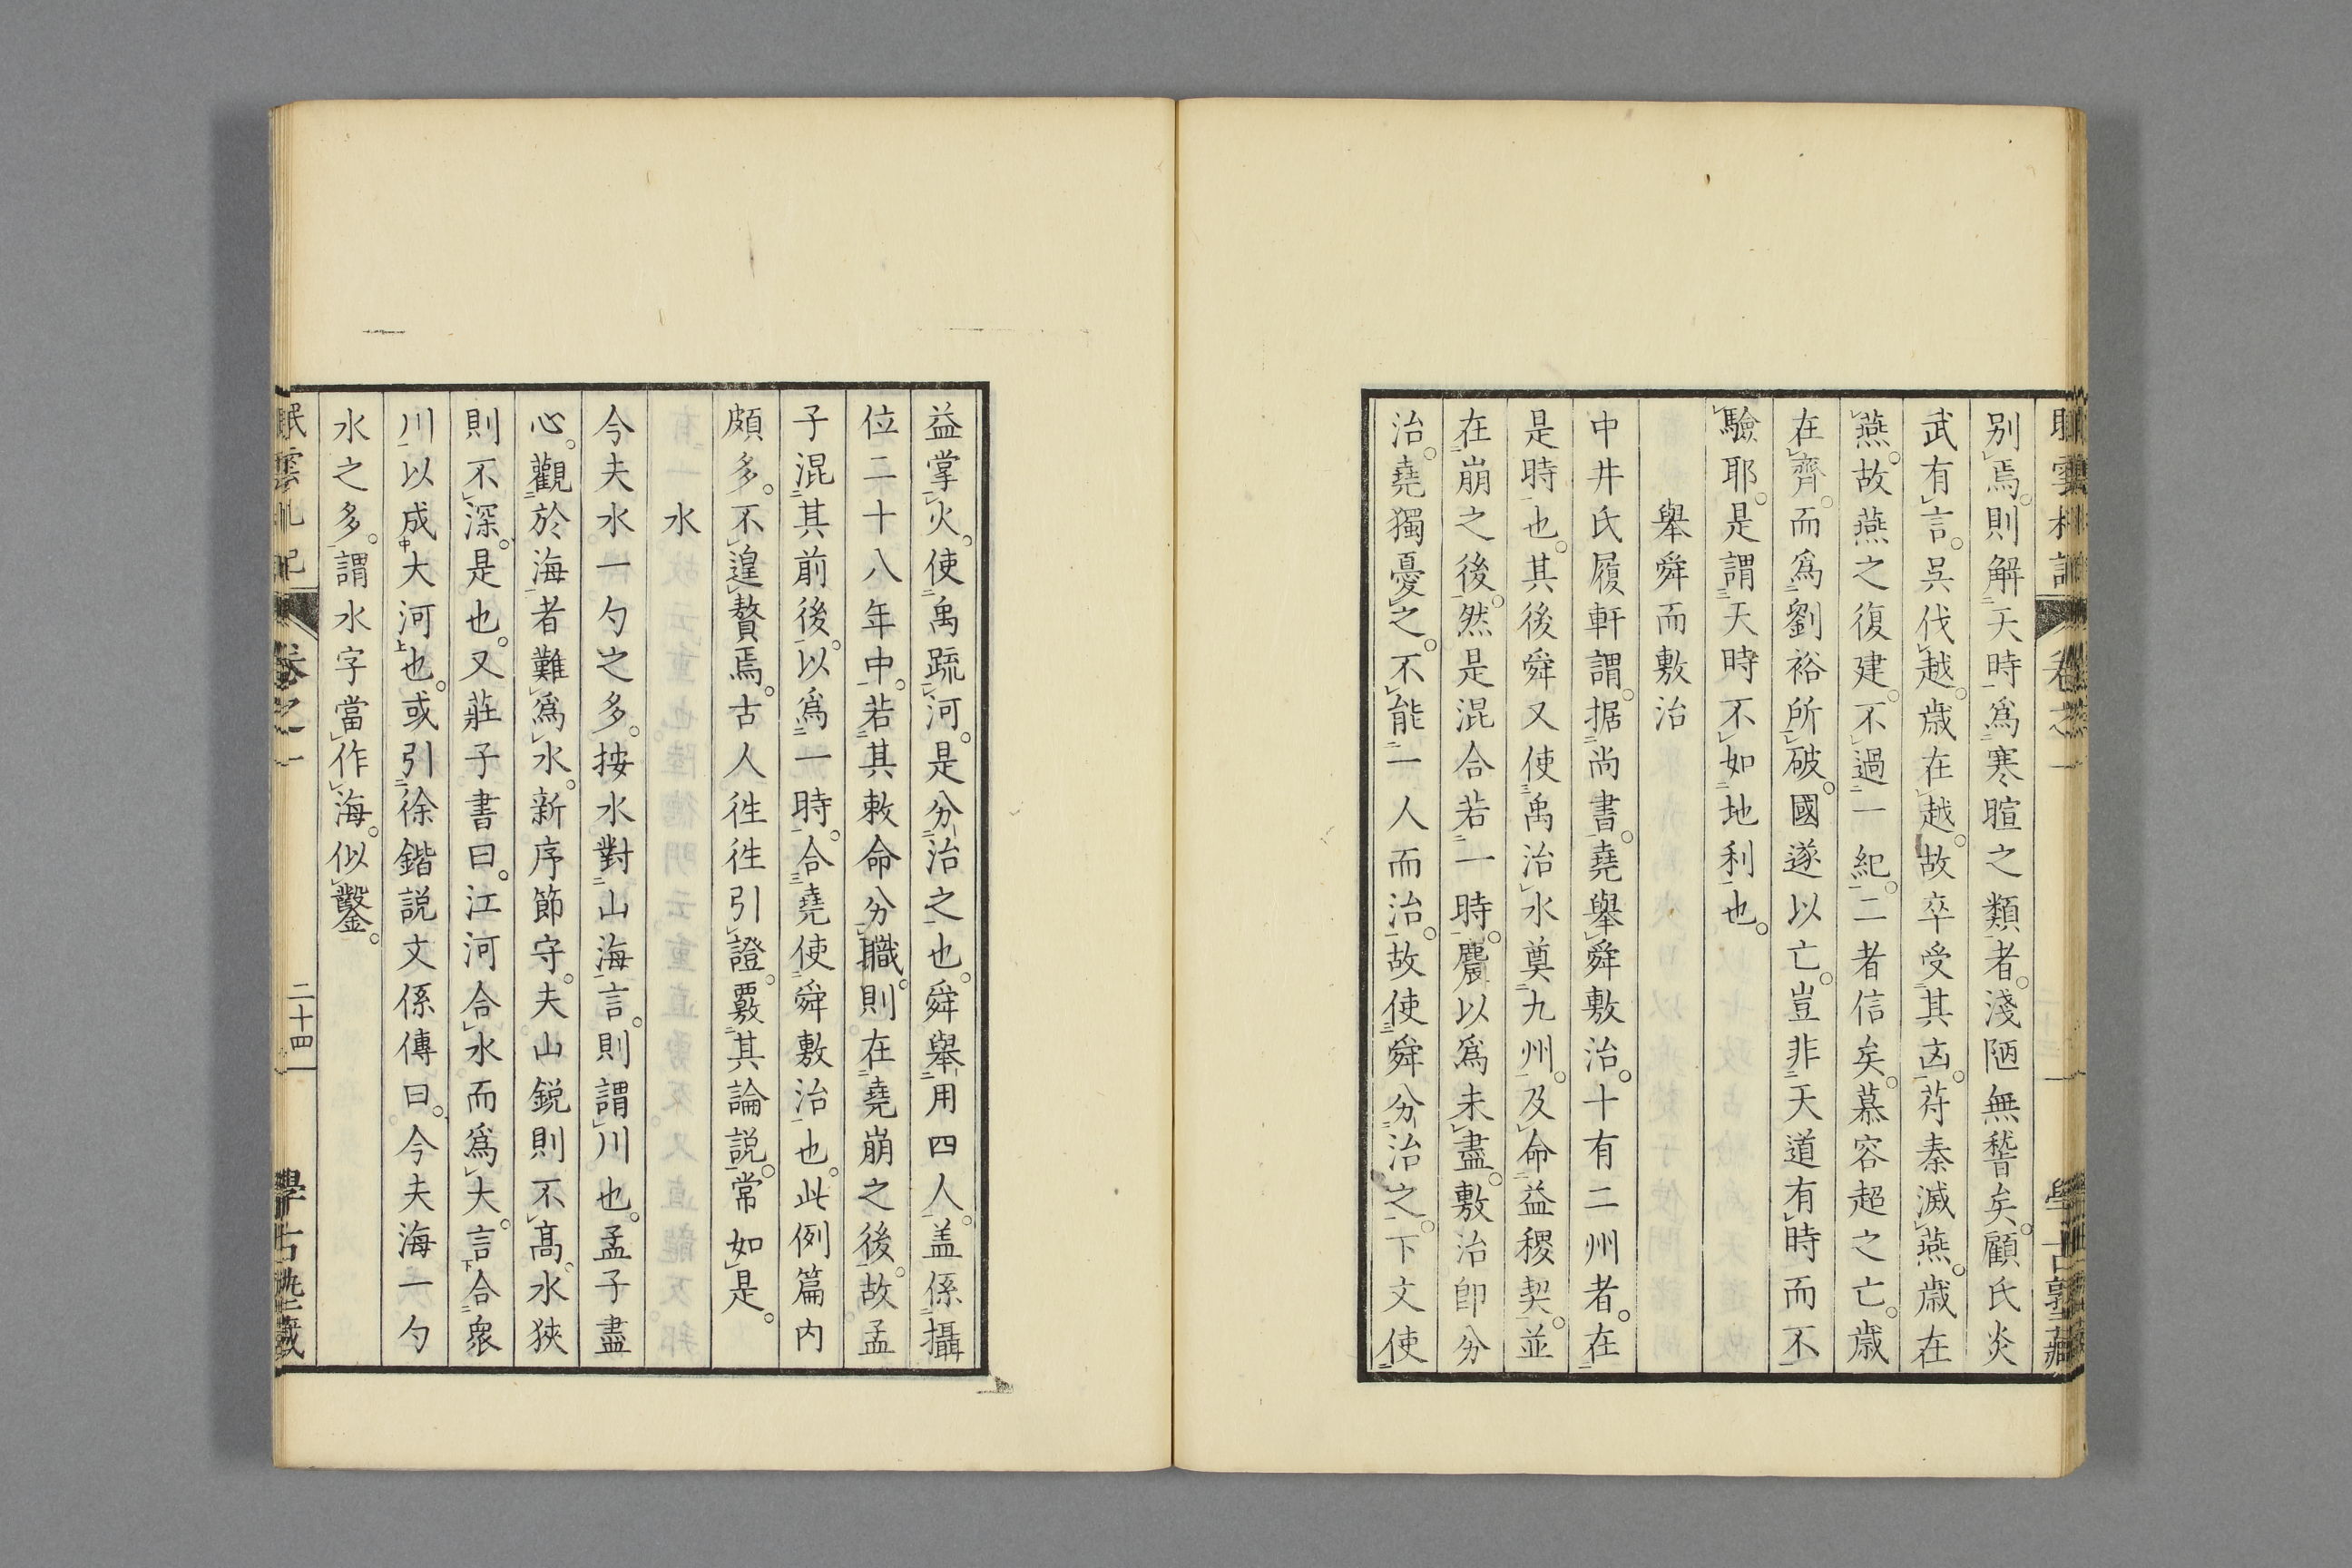 別焉。則解天時爲寒暄之類者。淺陋無稽矣。顧氏炎
武有言。吳伐越。歳在越。故卒受其凶。苻秦滅燕。歳在
燕。故燕之復建。不過一紀。二者信矣。慕容超之亡。歳
在齊。而爲劉裕所破。國遂以亡。豈非天道有時而不
驗耶。是謂天時不如地利也。
舉舜而敷治
中井氏履軒謂。据尚書。堯舉舜敷治。十有二州者。在
是時也。其後舜又使禹治水奠九州。及命益稷契。並
在崩之後。然是混合若一時。麤以爲未盡。敷治卽分
治。堯獨憂之。不能一人而治。故使舜分治之。下文使
益掌火。使禹疏河。是分治之也。舜舉用四人。盖係攝
位二十八年中。若其敕命分職。則在堯崩之後。故孟
子混其前後。以爲一時。合堯使舜敷治也。此例篇内
頗多。不遑贅焉。古人徃徃引證。覈其論説。常如是。
水
今夫水一勺之多。按水對山海言。則謂川也。孟子盡
心。觀於海者難爲水。新序節守。夫山鋭則不高。水狹
則不深。是也。又莊子書曰。江河合水而爲大。言合衆
川以成大河也。或引徐鍇説文係傳曰。今夫海一勺
水之多。謂水字當作海。似鑿。
卷之一
二十四